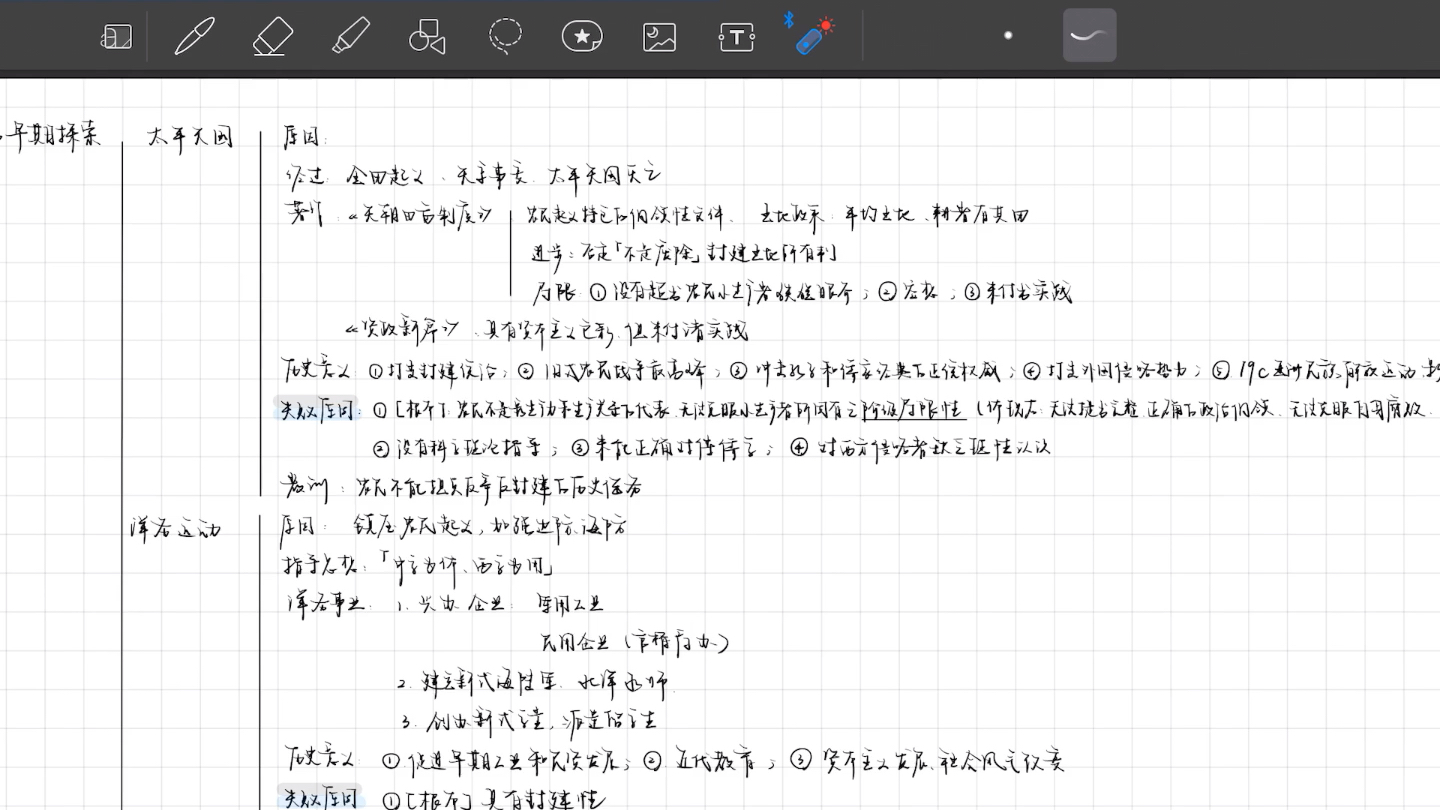 早期探索
太平天国
原因:
经过: 金田起义、天京事变、太平天国灭亡
著作:《天朝田亩制度》
农民起义特色的纲领性文件、土地政策:平均土地、耕者有其田
进步:否定「不是废除」封建土地所有制
局限:①没有超出农民小生产者狭隘眼界;②空想;③未付出实践
《资政新篇》:具有资本主义色彩,但未付诸实践
历史意义:①打击封建统治;②旧式农民战争最高峰;③冲击孔子和儒家经典的正统权威;④打击外国侵略势力;⑤19c亚洲民族解放运动
失败原因:①[根本]农民不是先进生产力和生产关系的代表,无法克服小生产者所固有之阶级局限性(体现在:无法提出完整、正确的政治纲领、无法克服内部腐败、
②没有科学理论指导;③未能正确对待儒学;④对西方侵略者缺乏理性认识
教训:农民不能担负反帝反封建的历史任务
洋务运动
原因: 镇压农民起义,加强边防、海防
指导思想:「中学为体、西学为用」
洋务事业: 1.兴办企业: 军用工业
民用企业(官督商办)
2.建立新式海陆军:北洋水师
3.创办新式学堂,派遣留学生
历史意义:①促进早期工业和民资发展;②近代教育;③资本主义发展、社会风气改变
失败原因:①[根本]具有封建性